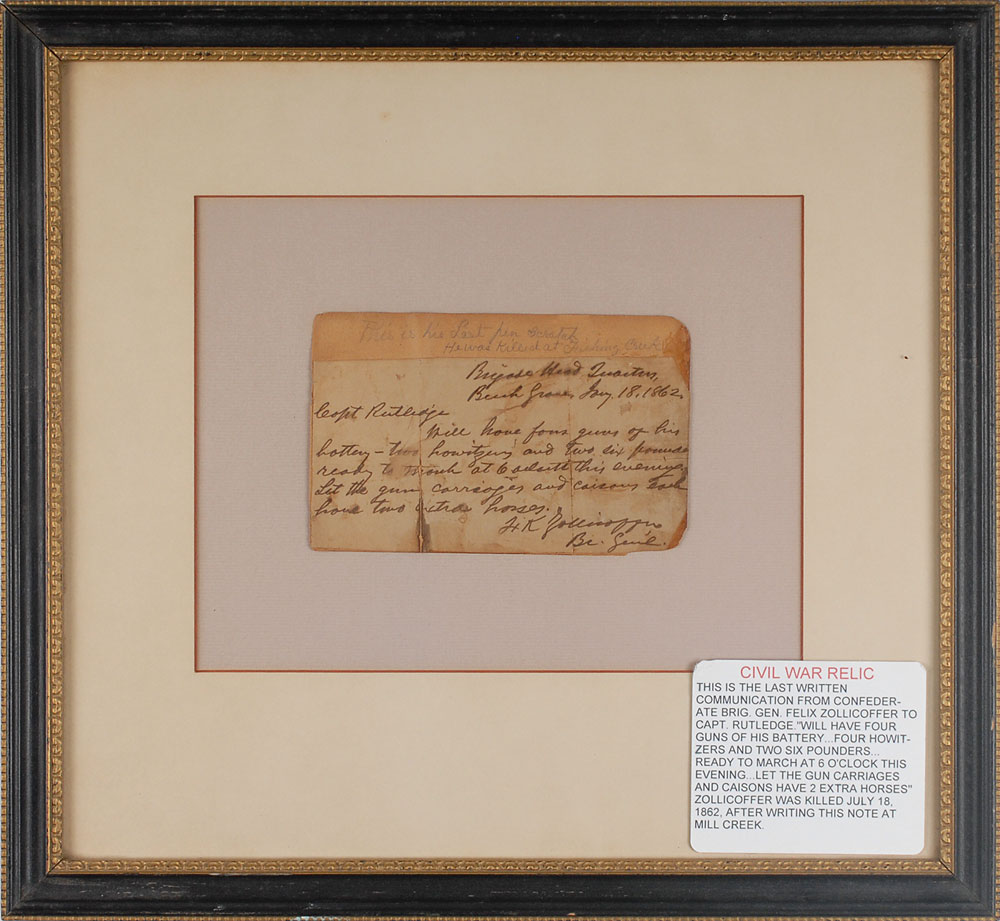 This is his Last pen scratch
He was Killed at Fishing Creek
Brigade Head Quarters,
Beech Grove, Jany. 18, 1862.
Capt Rutledge
Will have four guns of his
battery - two howitzers and two six pounders
ready to march at 6 oclock this evening.
Let the gun carriages and caisons each
have two extra horses.
F K Zollicoffer
Br. Genl.
CIVIL WAR RELIC
THIS IS THE LAST WRITTEN
COMMUNICATION FROM CONFEDER-
ATE BRIG. GEN. FELIX ZOLLICOFFER TO
CAPT. RUTLEDGE."WILL HAVE FOUR
GUNS OF HIS BATTERY...FOUR HOWIT-
ZERS AND TWO SIX POUNDERS...
READY TO MARCH AT 6 O'CLOCK THIS
EVENING...LET THE GUN CARRIAGES
AND CAISONS HAVE 2 EXTRA HORSES"
ZOLLICOFFER WAS KILLED JULY 18,
1862, AFTER WRITING THIS NOTE AT
MILL CREEK.